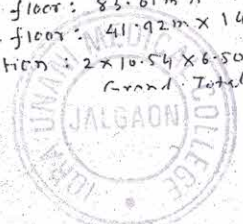 floor: 83.61m x
floor: 41.92m x 14
tion: 2x10.54 x 6.50
Grand Total
IQRA UNANI MEDICAL COLLEGE
JALGAON